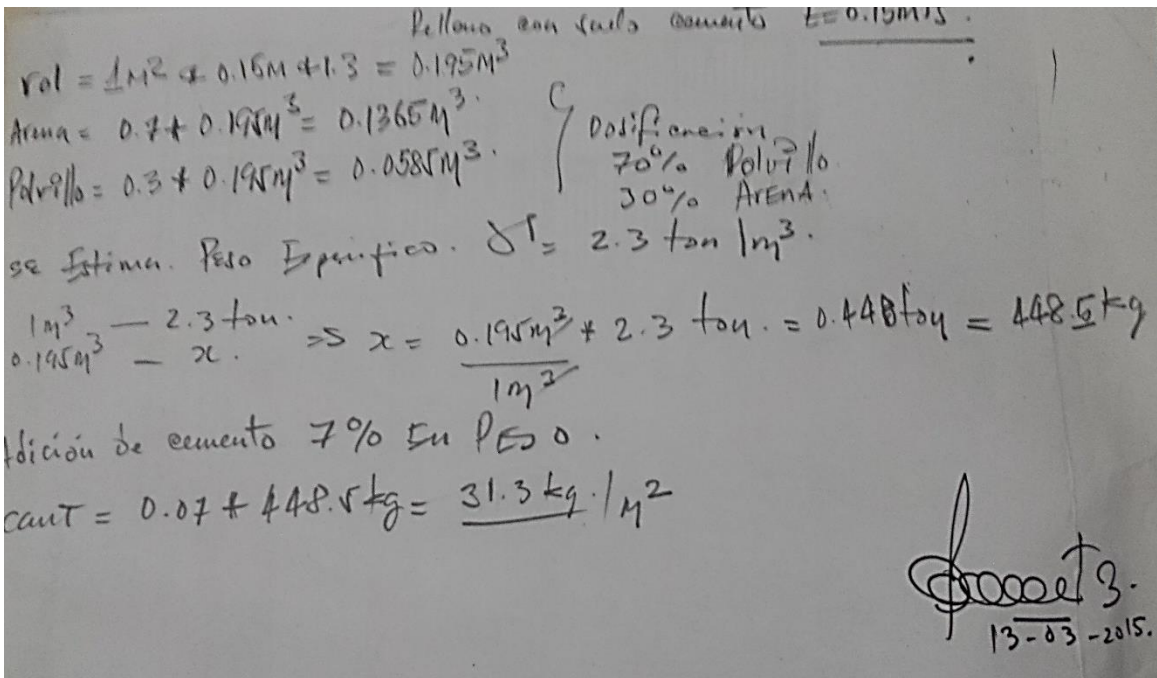 Relleno con suelo cemento t=0.15mts.
vol = 1M² * 0.15M * 1.3 = 0.195M³
Arena = 0.7 * 0.195M³ = 0.1365M³.
Polvillo = 0.3 * 0.195M³ = 0.0585M³.
Dosificación
70% Polvillo
30% ARENA.
se Estima. Peso Especifico. γT = 2.3 ton/m³.
1m³ — 2.3 ton.
0.195m³ — x.
=> x = 0.195m³ * 2.3 ton. = 0.448 ton = 448.5 kg
1m³
Adición de cemento 7% En PESO.
CANT = 0.07 * 448.5 kg = 31.3 kg./M²
13-03-2015.